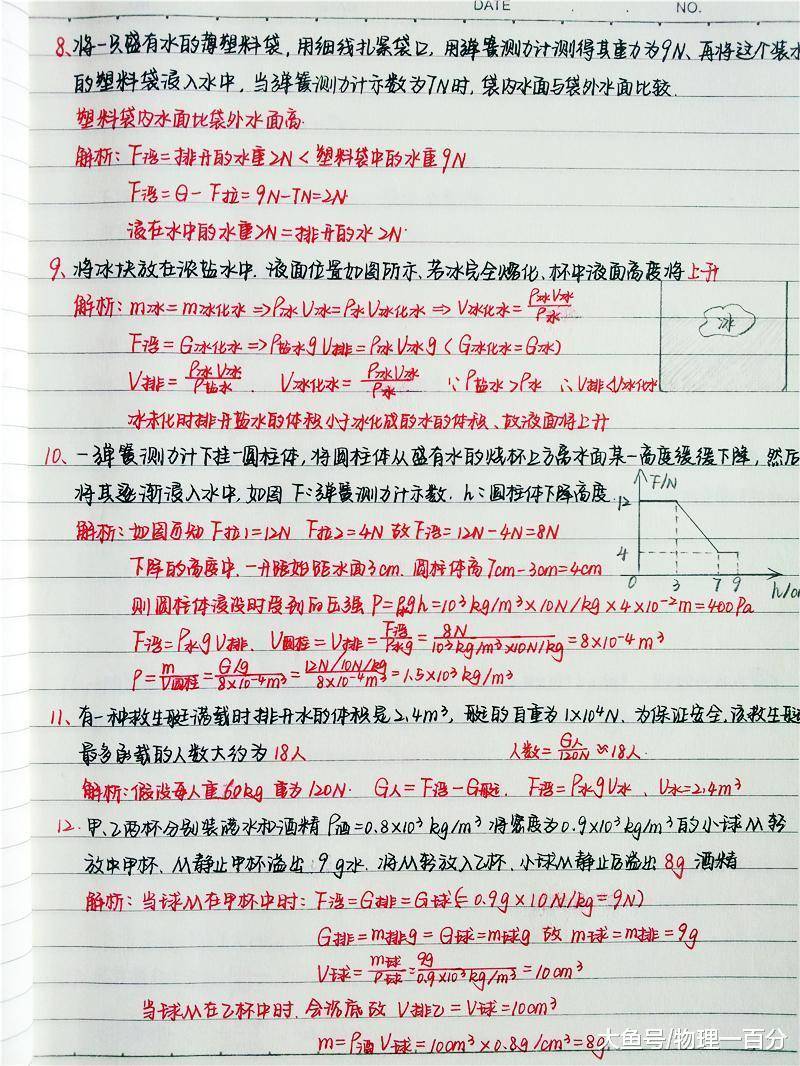 DATE . . NO.
8、将一只盛有水的薄塑料袋，用细线扎紧袋口，用弹簧测力计测得其重力为9N、再将这个装水
的塑料袋浸入水中，当弹簧测力计示数为7N时，袋内水面与袋外水面比较.
塑料袋内水面比袋外水面高.
解析：F浮=排开的水重2N<塑料袋中的水重9N
F浮=G-F拉=9N-7N=2N.
浸在水中的水重2N=排开的水2N.
9、将冰块放在浓盐水中. 液面位置如图所示、若冰完全熔化、杯中液面高度将上升
解析：m冰=m冰化水 =>ρ冰V冰=ρ水V冰化水 => V冰化水=ρ冰V冰/ρ水
冰
F浮=G冰化水 =>ρ盐水gV排=ρ冰V冰g (G冰化水=G冰)
V排=ρ冰V冰/ρ盐水 . V冰化水=ρ冰V冰/ρ水 ∵ρ盐水>ρ水 ∴V排<V冰化水
冰未化时排开盐水的体积小于冰化成的水的体积、故液面将上升
10、一弹簧测力计下挂一圆柱体，将圆柱体从盛有水的烧杯上方离水面某一高度缓缓下降，然后
将其逐渐浸入水中，如图 F：弹簧测力计示数. h：圆柱体下降高度.
F/N
12
4
0 3 7 9
解析：如图可知 F拉1=12N F拉2=4N 故F浮=12N-4N=8N
下降的高度中.一开始始距水面3cm. 圆柱体高7cm-3cm=4cm
则圆柱体浸没时受到的压强 P=ρgh=10³kg/m³×10N/kg×4×10⁻²m=400Pa
F浮=ρ水gV排、V圆柱=V排=F浮/ρ水g=8N/10³kg/m³×10N/kg=8×10⁻⁴m³
ρ=m/V圆柱=G/g/8×10⁻⁴m³=12N/10N/kg/8×10⁻⁴m³=1.5×10³kg/m³
11、有一种救生艇满载时排开水的体积是2.4m³，艇的自重为1×10⁴N、为保证安全，该救生艇
最多承载的人数大约为18人 人数=G人/120N≈18人.
解析：假设每人重60kg 重为120N. G人=F浮-G艇. F浮=ρ水gV水、V水=2.4m³
12.甲、乙两杯分别装满水和酒精ρ酒=0.8×10³kg/m³ 将密度为0.9×10³kg/m³的小球M轻
放中甲杯、M静止甲杯溢出 9g水. 将M轻放入乙杯. 小球M静止后溢出 8g 酒精
解析：当球M在甲杯中时：F浮=G排=G球(=0.9g×10N/kg=9N)
G排=m排g=G球=m球g 故m球=m排=9g
V球=m球/ρ球=9g/0.9×10³kg/m³=10cm³
当球M在乙杯中时.会沉底故 V排乙=V球=10cm³
m=ρ酒V球=10cm³×0.8g/cm³=8g.
大鱼号/物理一百分